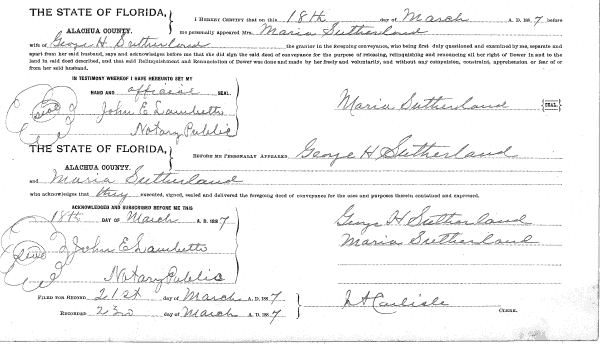 THE STATE OF FLORIDA,
ALACHUA COUNTY.
I HEREBY CERTIFY that on this 18th day of March A. D. 1887 before
me personally appeared Mrs. Maria Sutherland
wife of George H Sutherland the grantor in the foregoing conveyance, who being first duly questioned and examined by me, separate and
apart from her said husband, says and acknowledges before me that she did sign the said deed of conveyance for the purpose of releasing, relinquishing and renouncing all her right of Dower in and to the
land in said deed described, and that said Relinquishment and Renunciation of Dower was done and made by her freely and voluntarily, and without any compulsion, constraint, apprehension or fear of or
from her said husband.
IN TESTIMONY WHEREOF I HAVE HEREUNTO SET MY
HAND AND official SEAL.
Seal
John E Lambeth
Notary Public
Maria Sutherland {SEAL.}
THE STATE OF FLORIDA,
ALACHUA COUNTY.
BEFORE ME PERSONALLY APPEARED George H Sutherland
and Maria Sutherland
who acknowledges that they executed, signed, sealed and delivered the foregoing deed of conveyance for the uses and purposes therein contained and expressed.
ACKNOWLEDGED AND SUBSCRIBED BEFORE ME THIS
18th DAY OF March A. D. 1887
Seal
John E Lambeth
Notary Public
George H Sutherland
Maria Sutherland
FILED FOR RECORD 21st day of March A. D. 1887
RECORDED 23d day of March A. D. 1887
Carlisle
CLERK.